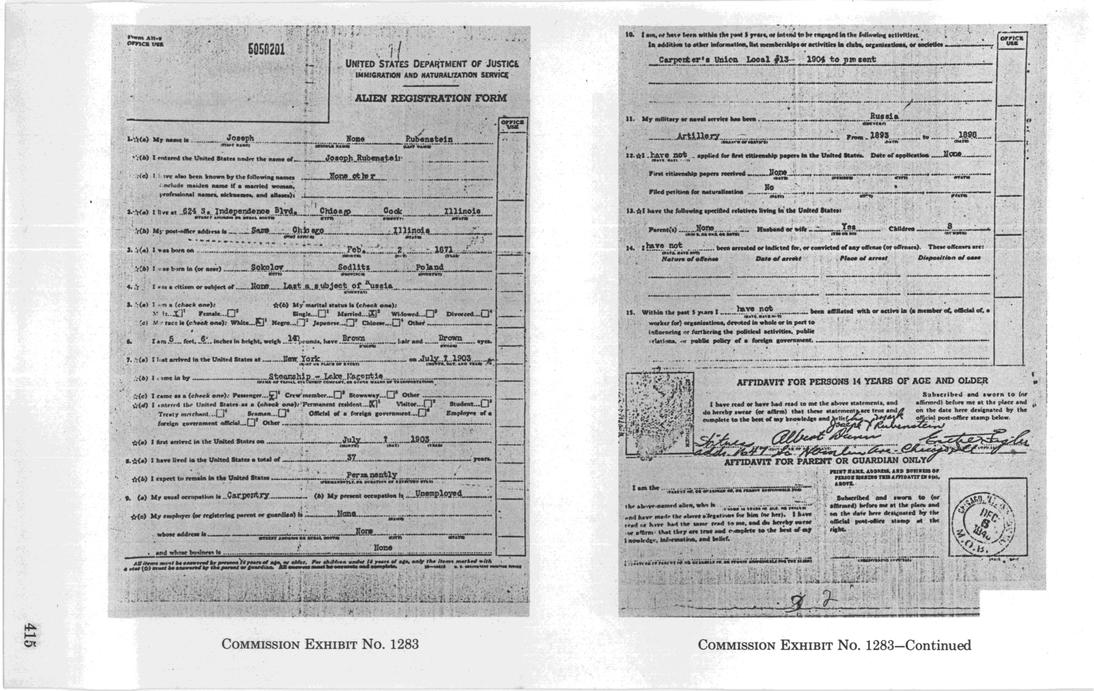 Form AR-2
OFFICE USE
5058201
UNITED STATES DEPARTMENT OF JUSTICE
IMMIGRATION AND NATURALIZATION SERVICE
ALIEN REGISTRATION FORM
OFFICE USE
1. (a) My name is Joseph None Rubenstein
(FIRST NAME) (MIDDLE NAME) (LAST NAME)
(b) I entered the United States under the name of Joseph Rubenstein
(c) I have also been known by the following names None other
(include maiden name if a married woman,
professional names, nicknames, and aliases):
2. (a) I live at 624 S. Independence Blvd. Chicago Cook Illinois
(b) My post-office address is Same Chicago Illinois
3. (a) I was born on Feb. 2 1871
(b) I was born in (or near) Sokolov Sedlitz Poland
4. I am a citizen or subject of None Last a subject of Russia
5. (a) I am a (check one): (b) My marital status is (check one):
Male X Female Single Married X Widowed Divorced
(c) My race is (check one): White X Negro Japanese Chinese Other
6. I am 5 feet, 6 inches in height, weigh pounds, have Brown hair and Brown eyes.
7. (a) I last arrived in the United States at New York on July 7 1903
(b) I came in by Steamship - Lake
(c) I came as a (check one): Passenger X Crew member Stowaway Other
(d) I entered the United States as a (check one): Permanent resident X Visitor Student
Treaty merchant Seaman Official of a foreign government Employee of a
foreign government official Other
(e) I first arrived in the United States on July 7 1903
8. (a) I have lived in the United States a total of 37 years.
(b) I expect to remain in the United States Permanently
9. (a) My usual occupation is Carpentry (b) My present occupation is Unemployed
(c) My employer (or registering parent or guardian) is None
whose address is None
and whose business is None
All items must be answered by persons 14 years of age, or older. For children under 14 years of age, only the items marked with
a star (☆) must be answered by the parent or guardian. All answers must be accurate and complete.
415
COMMISSION EXHIBIT No. 1283
10. I am, or have been within the past 5 years, or intend to be engaged in the following activities:
In addition to other information, list memberships or activities in clubs, organizations, or societies
OFFICE USE
Carpenter's Union Local #13- 1904 to present
11. My military or naval service has been Russia
(COUNTRY)
Artillery From 1893 to 1898
12. I have not applied for first citizenship papers in the United States. Date of application None
First citizenship papers received None
Filed petition for naturalization No
13. I have the following specified relatives living in the United States:
Parent(s) None Husband or wife Yes Children 8
14. I have not been arrested or indicted for, or convicted of any offense (or offenses). These offenses are:
Nature of offense Date of arrest Place of arrest Disposition of case
15. Within the past 5 years I have not been affiliated with or active in (a member of, official of, a
worker for) organizations, devoted in whole or in part to
influencing or furthering the political activities, public
relations, or public policy of a foreign government.
AFFIDAVIT FOR PERSONS 14 YEARS OF AGE AND OLDER
I have read or have had read to me the above statements, and
do hereby swear (or affirm) that these statements are true and
complete to the best of my knowledge and belief.
Subscribed and sworn to (or
affirmed) before me at the place and
on the date here designated by the
official post-office stamp below.
his mark
Joseph X Rubenstein
Witness Albert Dunn
AFFIDAVIT FOR PARENT OR GUARDIAN ONLY
I am the
the above-named alien, who is
and have made the above allegations for him (or her). I have
read or have had the same read to me, and do hereby swear
(or affirm) that they are true and complete to the best of my
knowledge, information, and belief.
PRINT NAME, ADDRESS, AND BUSINESS OF
PERSON SIGNING THIS AFFIDAVIT IN FULL
ABOVE.
Subscribed and sworn to (or
affirmed) before me at the place and
on the date here designated by the
official post-office stamp at the
right.
CHICAGO, ILL.
DEC
6
1940
M.O.B.
2
COMMISSION EXHIBIT No. 1283—Continued